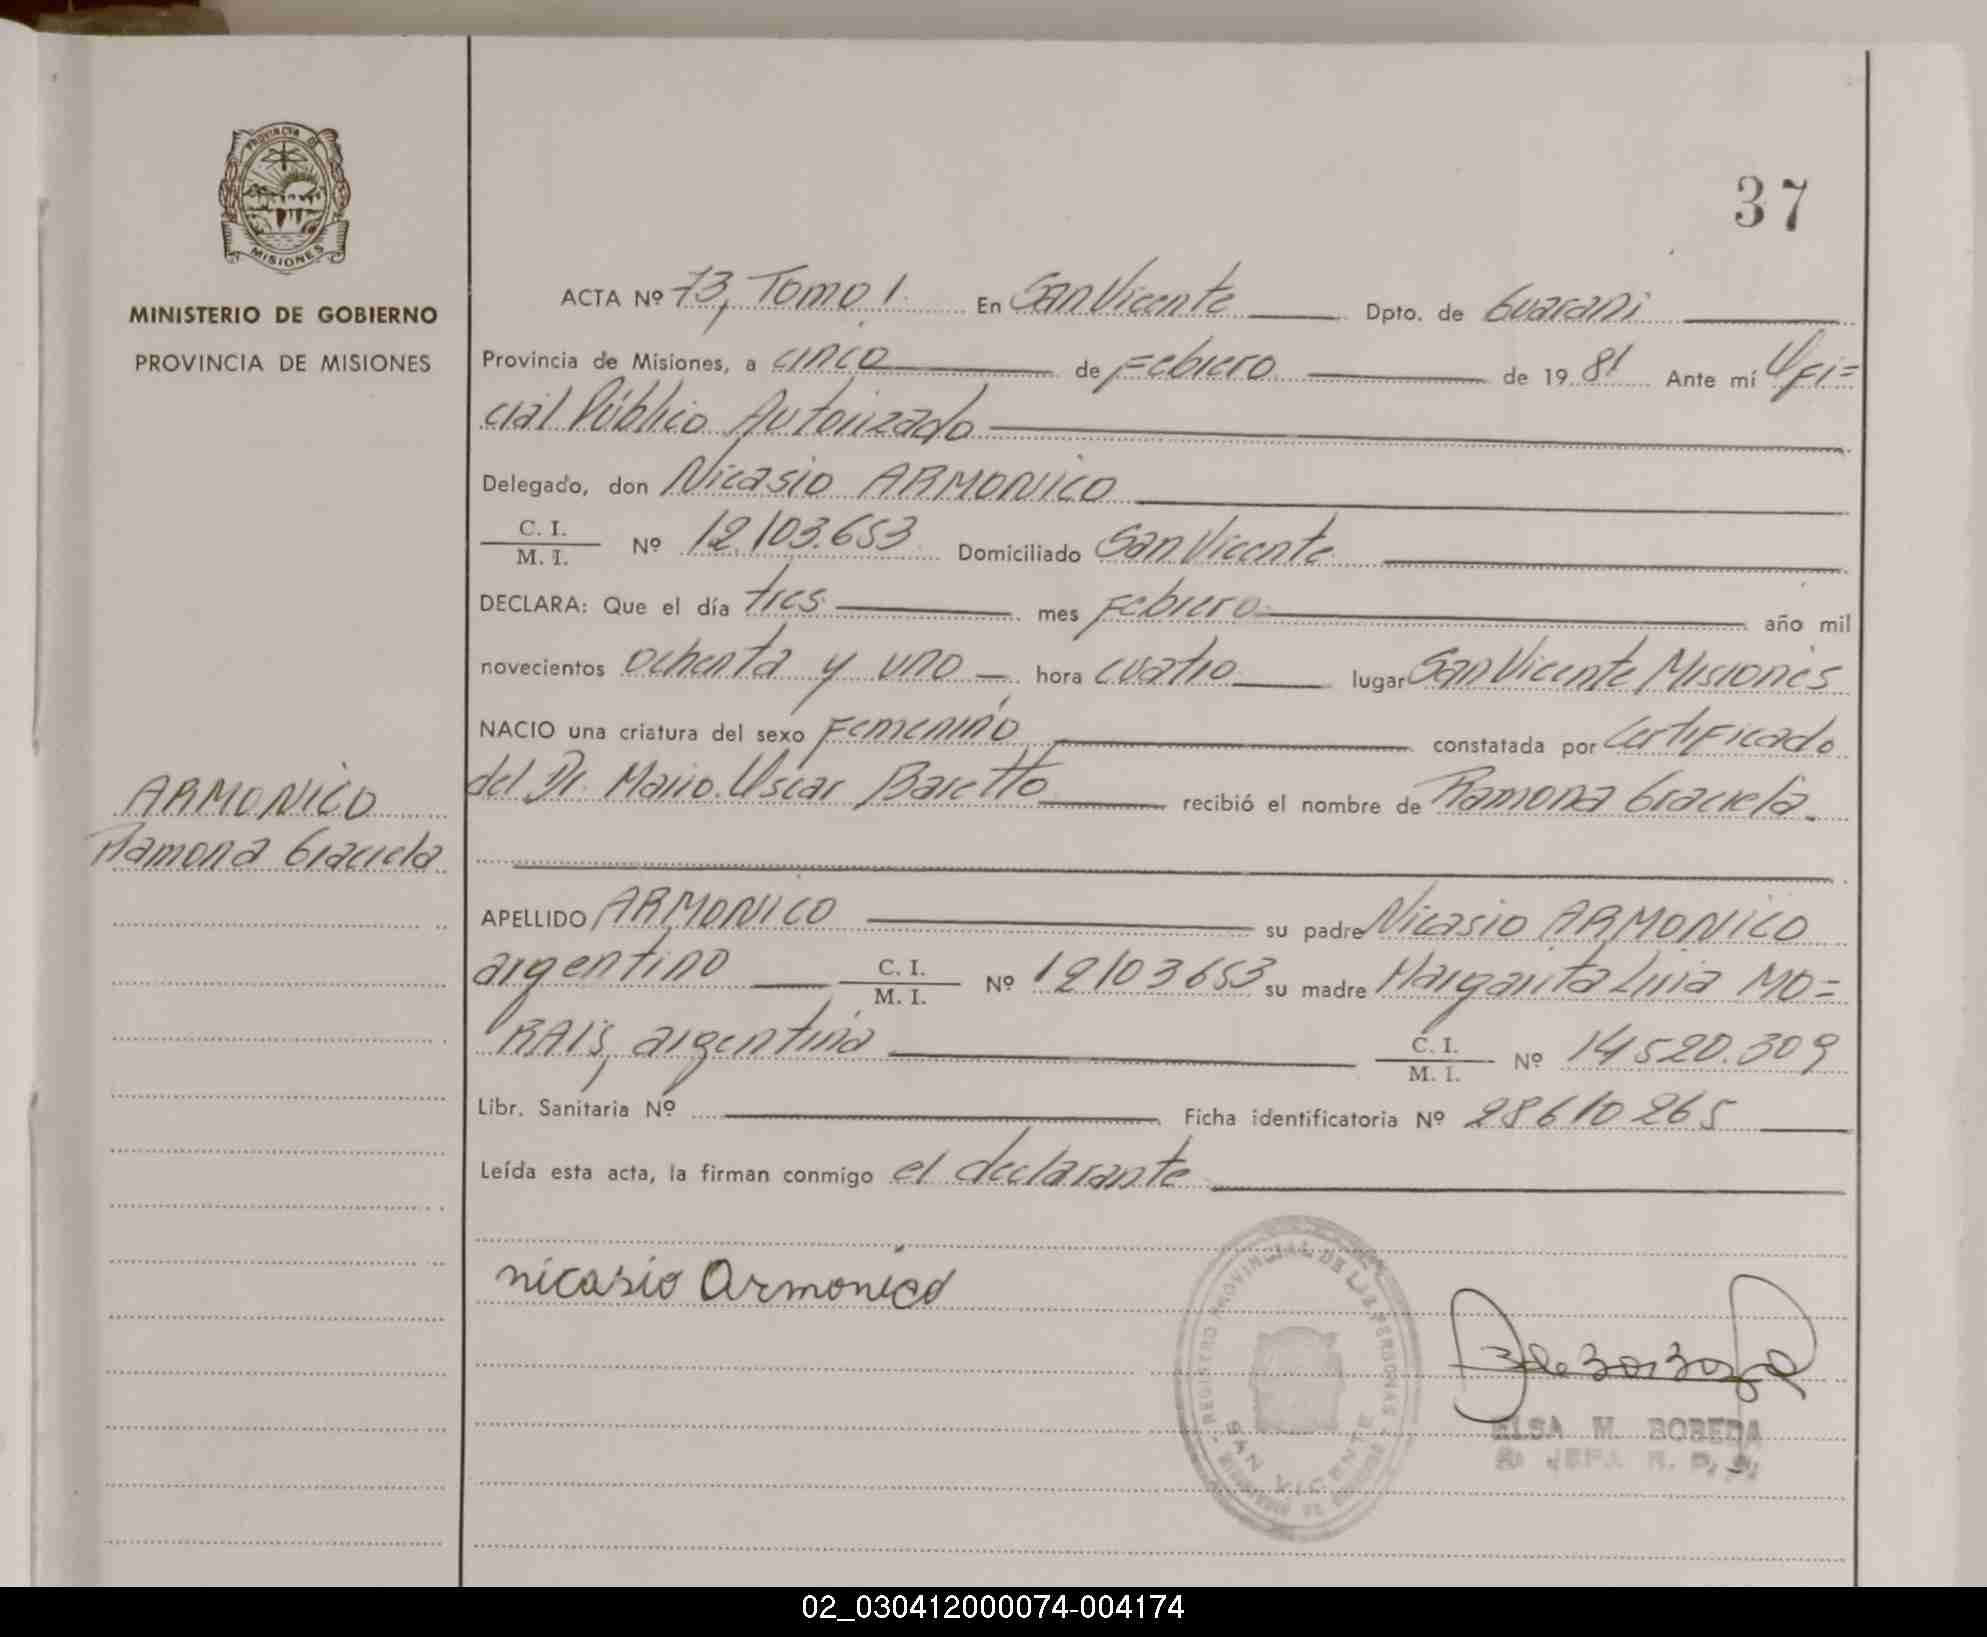 PROVINCIA DE
MISIONES
MINISTERIO DE GOBIERNO
PROVINCIA DE MISIONES
37
ACTA Nº 73, Tomo I. En San Vicente Dpto. de Guaraní
Provincia de Misiones, a cinco de Febrero de 19 81 Ante mí Ofi=
cial Público Autorizado
Delegado, don Nicasio ARMONICO
C. I.
M. I.
Nº 12.103.653 Domiciliado San Vicente
DECLARA: Que el día tres mes Febrero año mil
novecientos ochenta y uno hora cuatro lugar San Vicente Misiones
NACIO una criatura del sexo Femenino constatada por Certificado
del Dr. Mario Oscar Baretto recibió el nombre de Ramona Graciela.
ARMONICO
Ramona Graciela
APELLIDO ARMONICO su padre Nicasio ARMONICO
argentino C. I.
M. I.
Nº 12103653 su madre Margarita Livia MO=
RAIS, argentina C. I.
M. I.
Nº 14520.309
Libr. Sanitaria Nº Ficha identificatoria Nº 28610265
Leída esta acta, la firman conmigo el declarante
nicasio Armonico
REGISTRO PROVINCIAL DE LAS PERSONAS
SAN VICENTE
MINISTERIO DE GOBIERNO
ELSA M. BOBEDA
JEFA R. P.
02_030412000074-004174